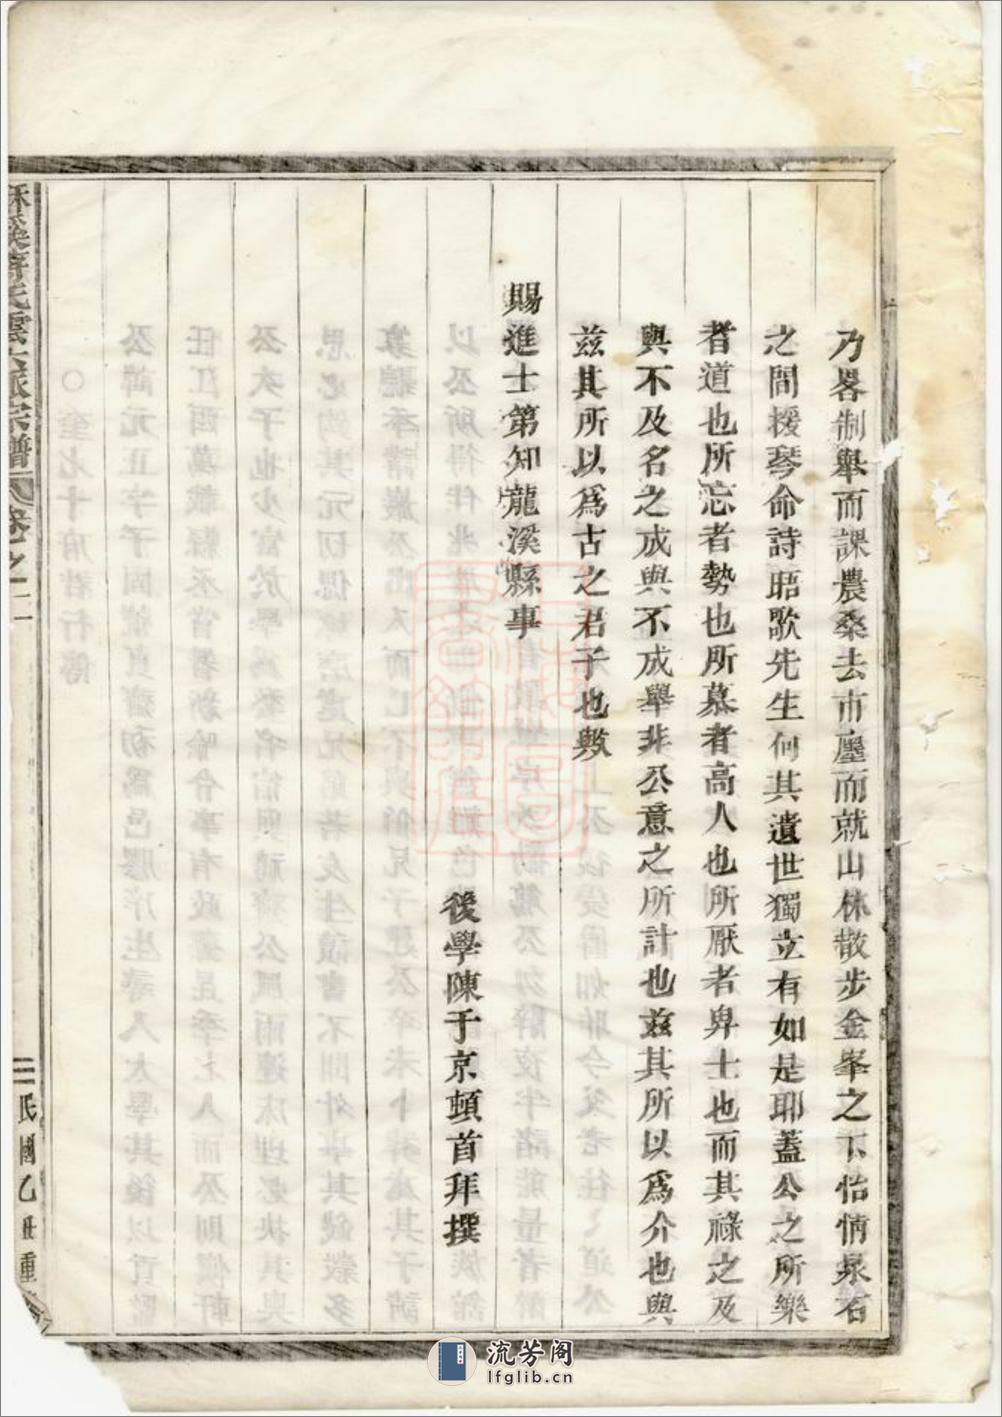 乃畧制舉而課農桑去市廛而就山林散步金峯之下怡情泉石
之間援琴命詩晤歌先生何其遺世獨立有如是耶蓋公之所樂
者道也所忘者勢也所慕者高人也所厭者卑士也而其祿之及
與不及名之成與不成舉非公意之所計也兹其所以爲介也與
兹其所以爲古之君子也歟
賜進士第知龍溪縣事
後學陳于京頓首拜撰
氏雲六派宗譜 卷之二
民國乙丑重
流芳阁
lfglib.cn